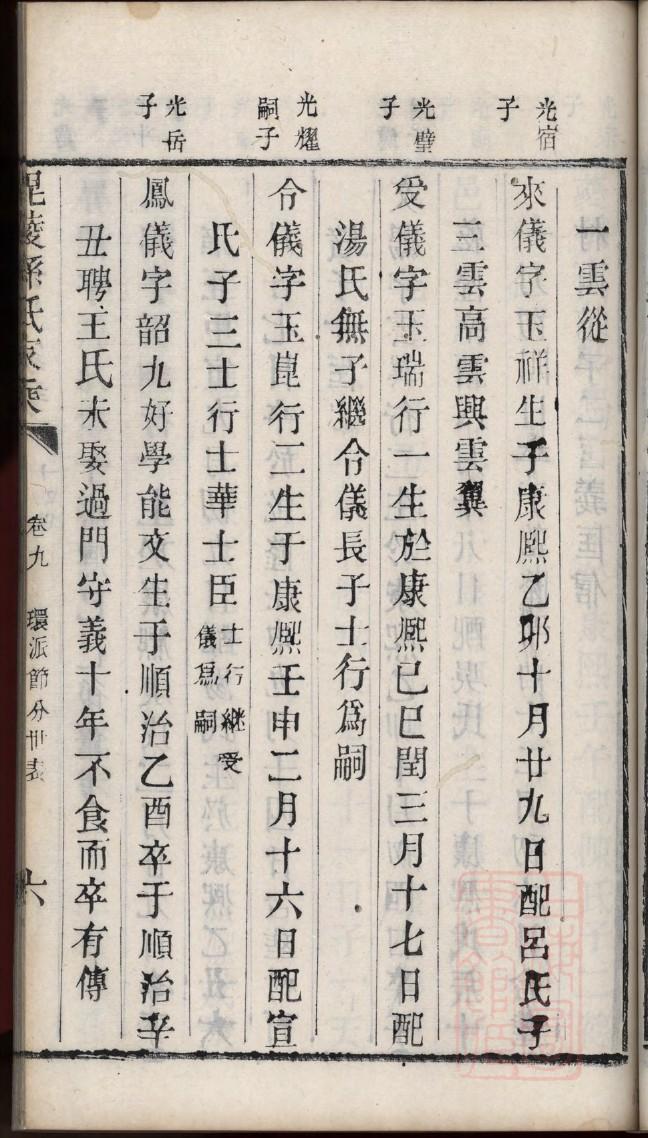 一雲從
光宿
子
來儀字玉祥生于康熙乙卯十月廿九日配呂氏子
三雲高雲興雲翼
光璧
子
受儀字玉瑞行一生於康熙己巳閏三月十七日配
湯氏無子繼令儀長子士行爲嗣
光耀
嗣子
令儀字玉崑行二生于康熙壬申二月十六日配宣
氏子三士行士華士臣士行繼受
儀爲嗣
光岳
子
鳳儀字韶九好學能文生于順治乙酉卒于順治辛
丑聘王氏未娶過門守義十年不食而卒有傳
毘陵孫氏家乘
卷九 環派節分世表 六